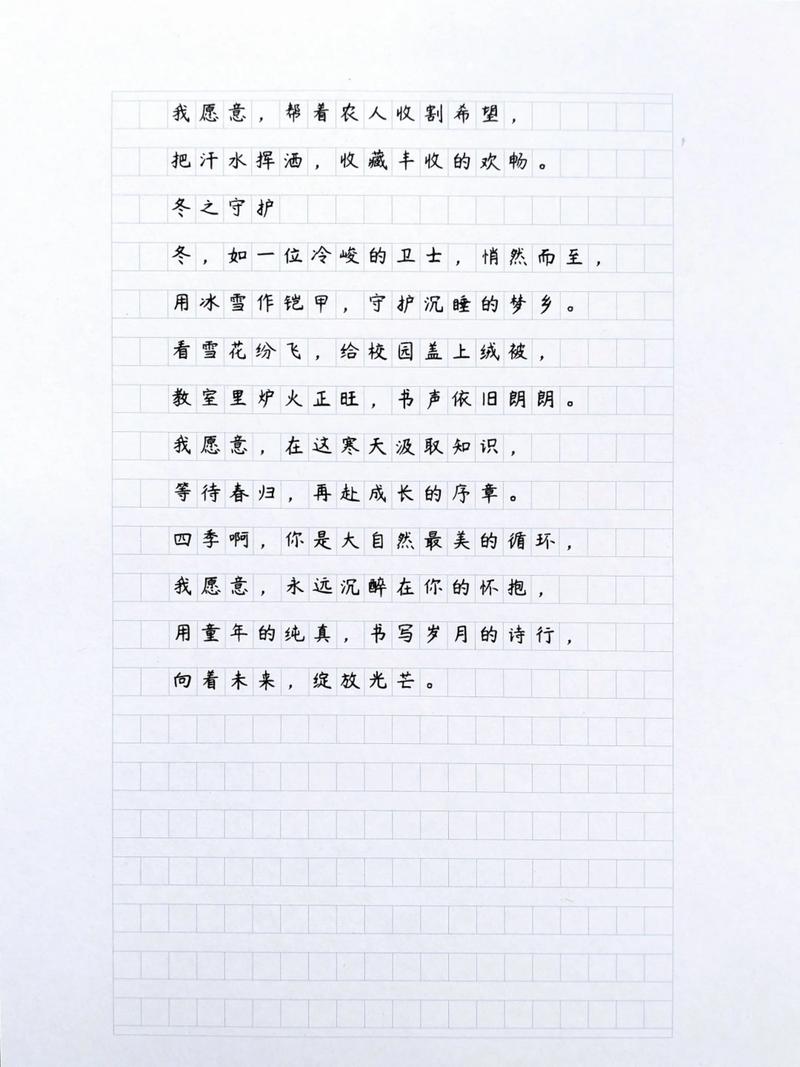 我愿意，帮着农人收割希望，
把汗水挥洒，收藏丰收的欢畅。
冬之守护
冬，如一位冷峻的卫士，悄然而至，
用冰雪作铠甲，守护沉睡的梦乡。
看雪花纷飞，给校园盖上绒被，
教室里炉火正旺，书声依旧朗朗。
我愿意，在这寒天汲取知识，
等待春归，再赴成长的序章。
四季啊，你是大自然最美的循环，
我愿意，永远沉醉在你的怀抱，
用童年的纯真，书写岁月的诗行，
向着未来，绽放光芒。